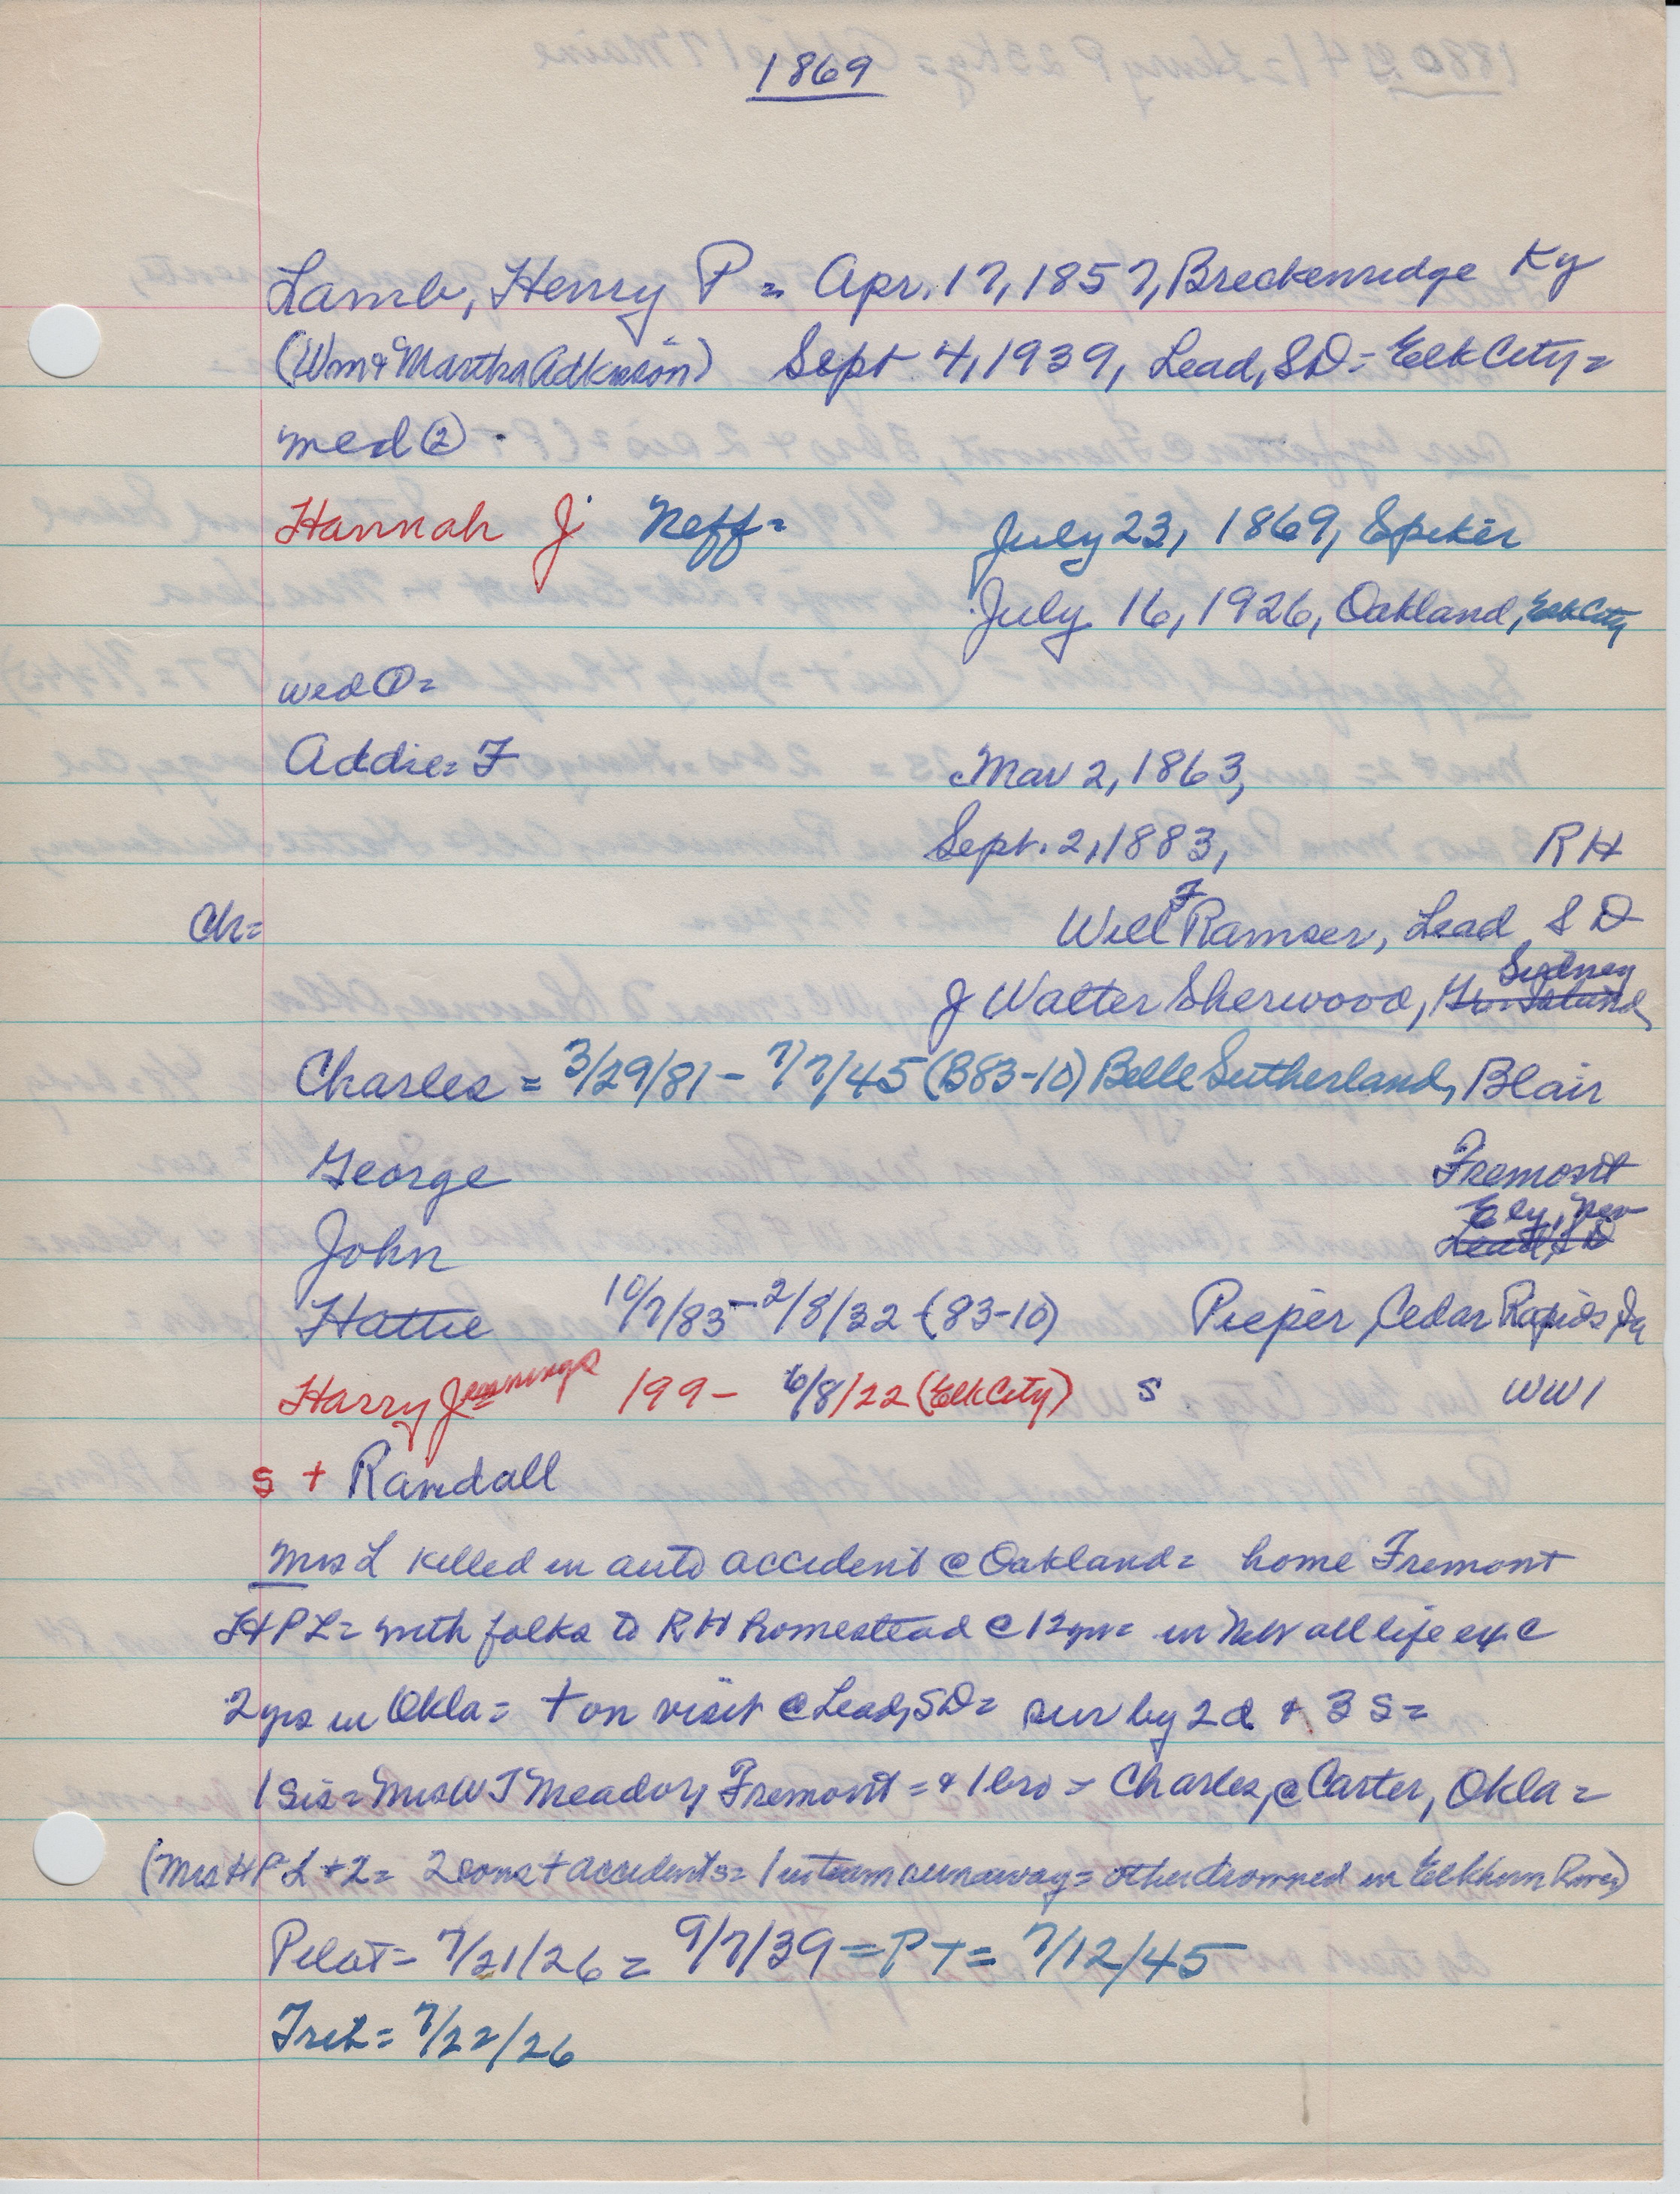 1869
Lamb, Henry P = Apr. 17, 1857, Breckenridge Ky
(Wm & Martha Adkinson) Sept 4, 1939, Lead, SD = Elk City =
med ② .
Hannah J Neff = July 23, 1869, Spiker
July 16, 1926, Oakland, Elk City
wed ① =
Addie = F Mar 2, 1863,
Sept. 2, 1883, RH
Ch = Will F Ramser, Lead S D
J Walter Sherwood, Gr. Island Sydney
Charles = 3/29/81 - 7/7/45 (B83-10) Belle Sutherland, Blair
George Fremont
John Lead, S D Ely, Nev
Hattie 10/7/83 - 2/8/32 (83-10) Pieper, Cedar Rapids Ia
Harry Jennings 199 - 6/8/22 (Elk City) S WW1
s + Randall
Mrs L killed in auto accident @ Oakland = home Fremont
HPL = with folks to RH homestead @ 12 yrs = in Neb all life exc
2 yrs in Okla = + on visit @ Lead, SD = sur by 2 d & 3 S =
1 sis = Mrs W J Meador, Fremont = & 1 bro = Charles, @ Carter, Okla =
(Mrs H P L + 2 = 2 sons + accidents = 1 in team runaway = other drowned in Elkhorn River)
Pilot = 7/21/26 = 9/7/39 = PT = 7/12/45
Trib = 7/22/26